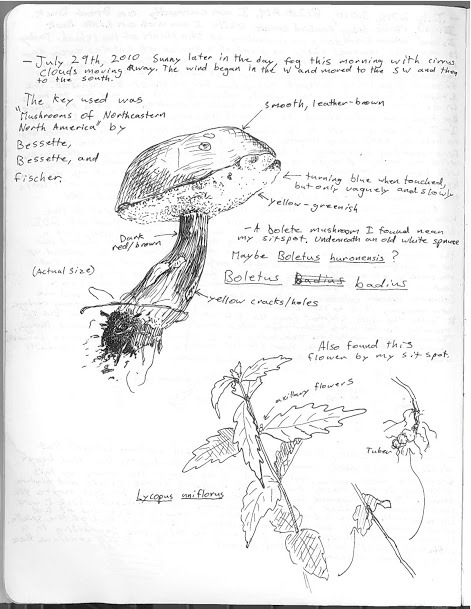 - July 29th, 2010 Sunny later in the day, fog this morning with cirrus
clouds moving away. The wind began in the W and moved to the SW and then
to the south.
The key used was
"Mushrooms of Northeastern
North America" by
Bessette,
Bessette, and
Fischer.
smooth, leather-brown
turning blue when touched,
but only vaguely and slowly
yellow-greenish
Dark
red/brown
- A bolete mushroom I found near
my sitspot. Underneath an old white spruce
Maybe Boletus huronensis ?
Boletus badius badius
(Actual size)
yellow cracks/holes
Also found this
flower by my sit spot.
axillary flowers
Tuber
Lycopus uniflorus